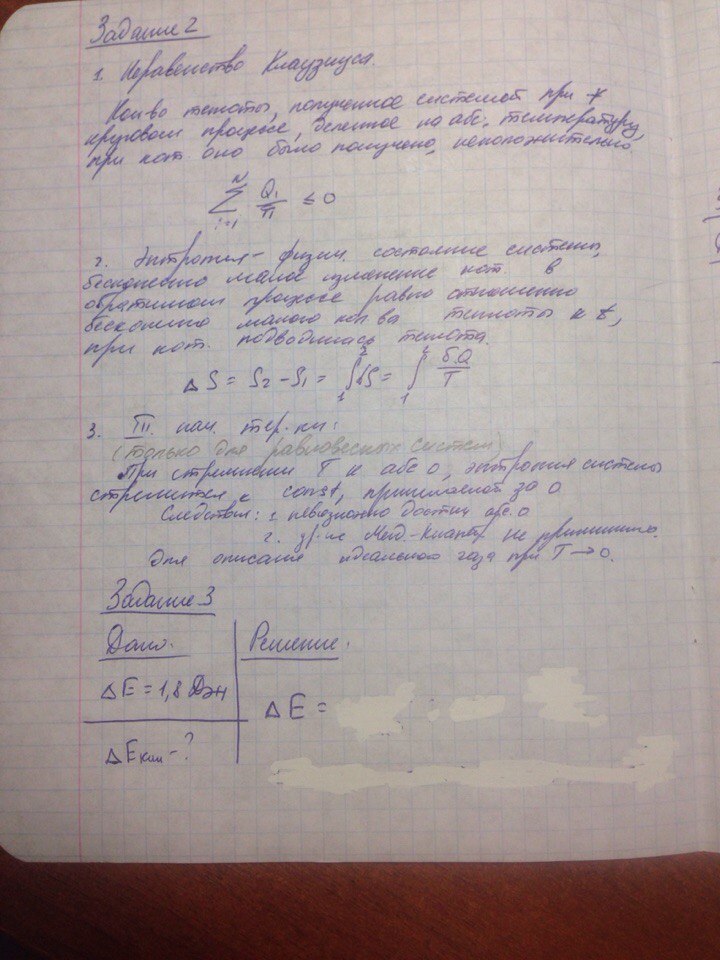 Задание 2
1. Неравенство Клаузиуса.
Кол-во теплоты, полученное системой при ∀
круговом процессе, деленное на абс. температуру,
при кот. оно было получено, неположительно.
N
∑ Qi/Ti ≤ 0
i=1
2. Энтропия - физич. состояние системы,
бесконечно малое изменение кот. в
обратимом процессе равно отношению
бесконечно малого кол-ва теплоты к t,
при кот. подводилась теплота.
ΔS = S2 - S1 = ₁∫² dS = ₁∫² δQ/T
3. III нач. тер-ки:
(только для равновесных систем)
При стремлении T к абс 0, энтропия системы
стремится к const, принимаемой за 0
Следствия: 1. невозможно достич абс. 0
2. ур-ие Менд-Клапер. не применимо
для описания идеального газа при T→0.
Задание 3
Дано:
Решение:
ΔE = 1,8 Дж
ΔE =
ΔEкин - ?